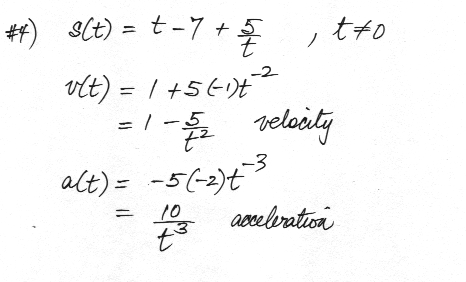 #4) s(t) = t - 7 + 5/t , t ≠ 0
v(t) = 1 + 5(-1)t⁻²
= 1 - 5/t² velocity
a(t) = -5(-2)t⁻³
= 10/t³ acceleration